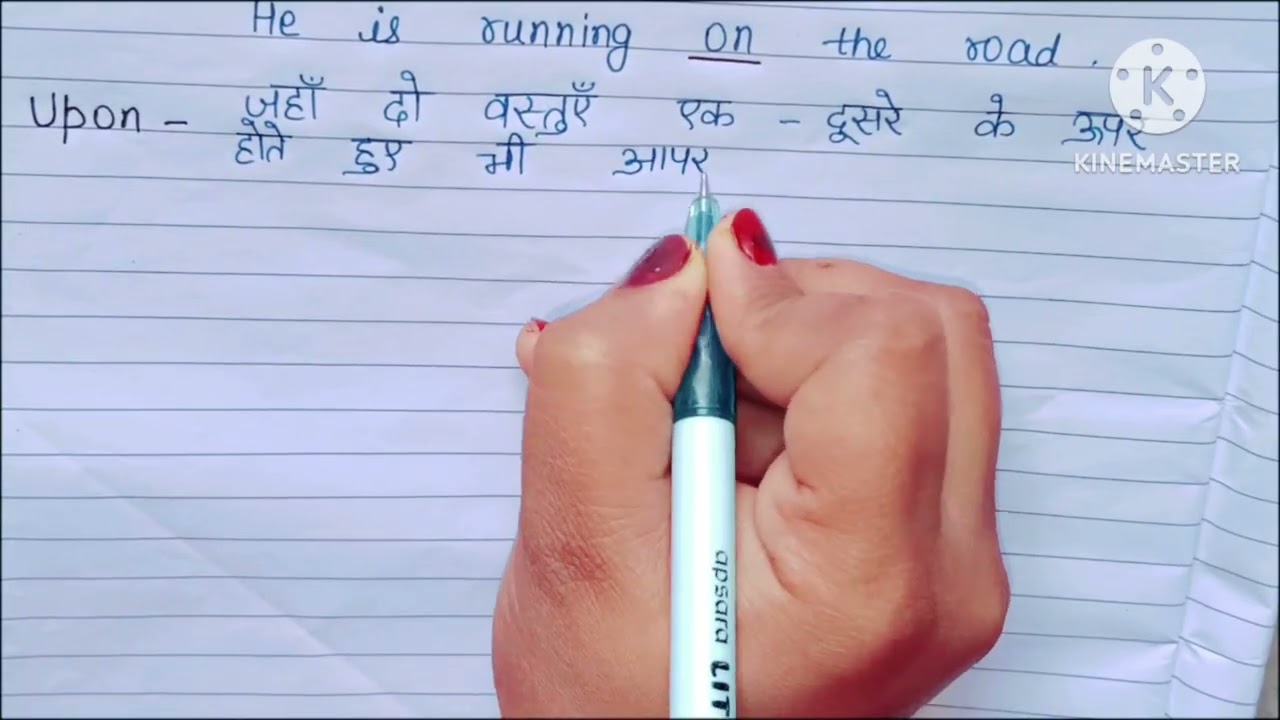 He is running on the road.
Upon - जहाँ दो वस्तुएँ एक - दूसरे के ऊपर
होते हुए भी आपर
K
KINEMASTER
apsara LIT